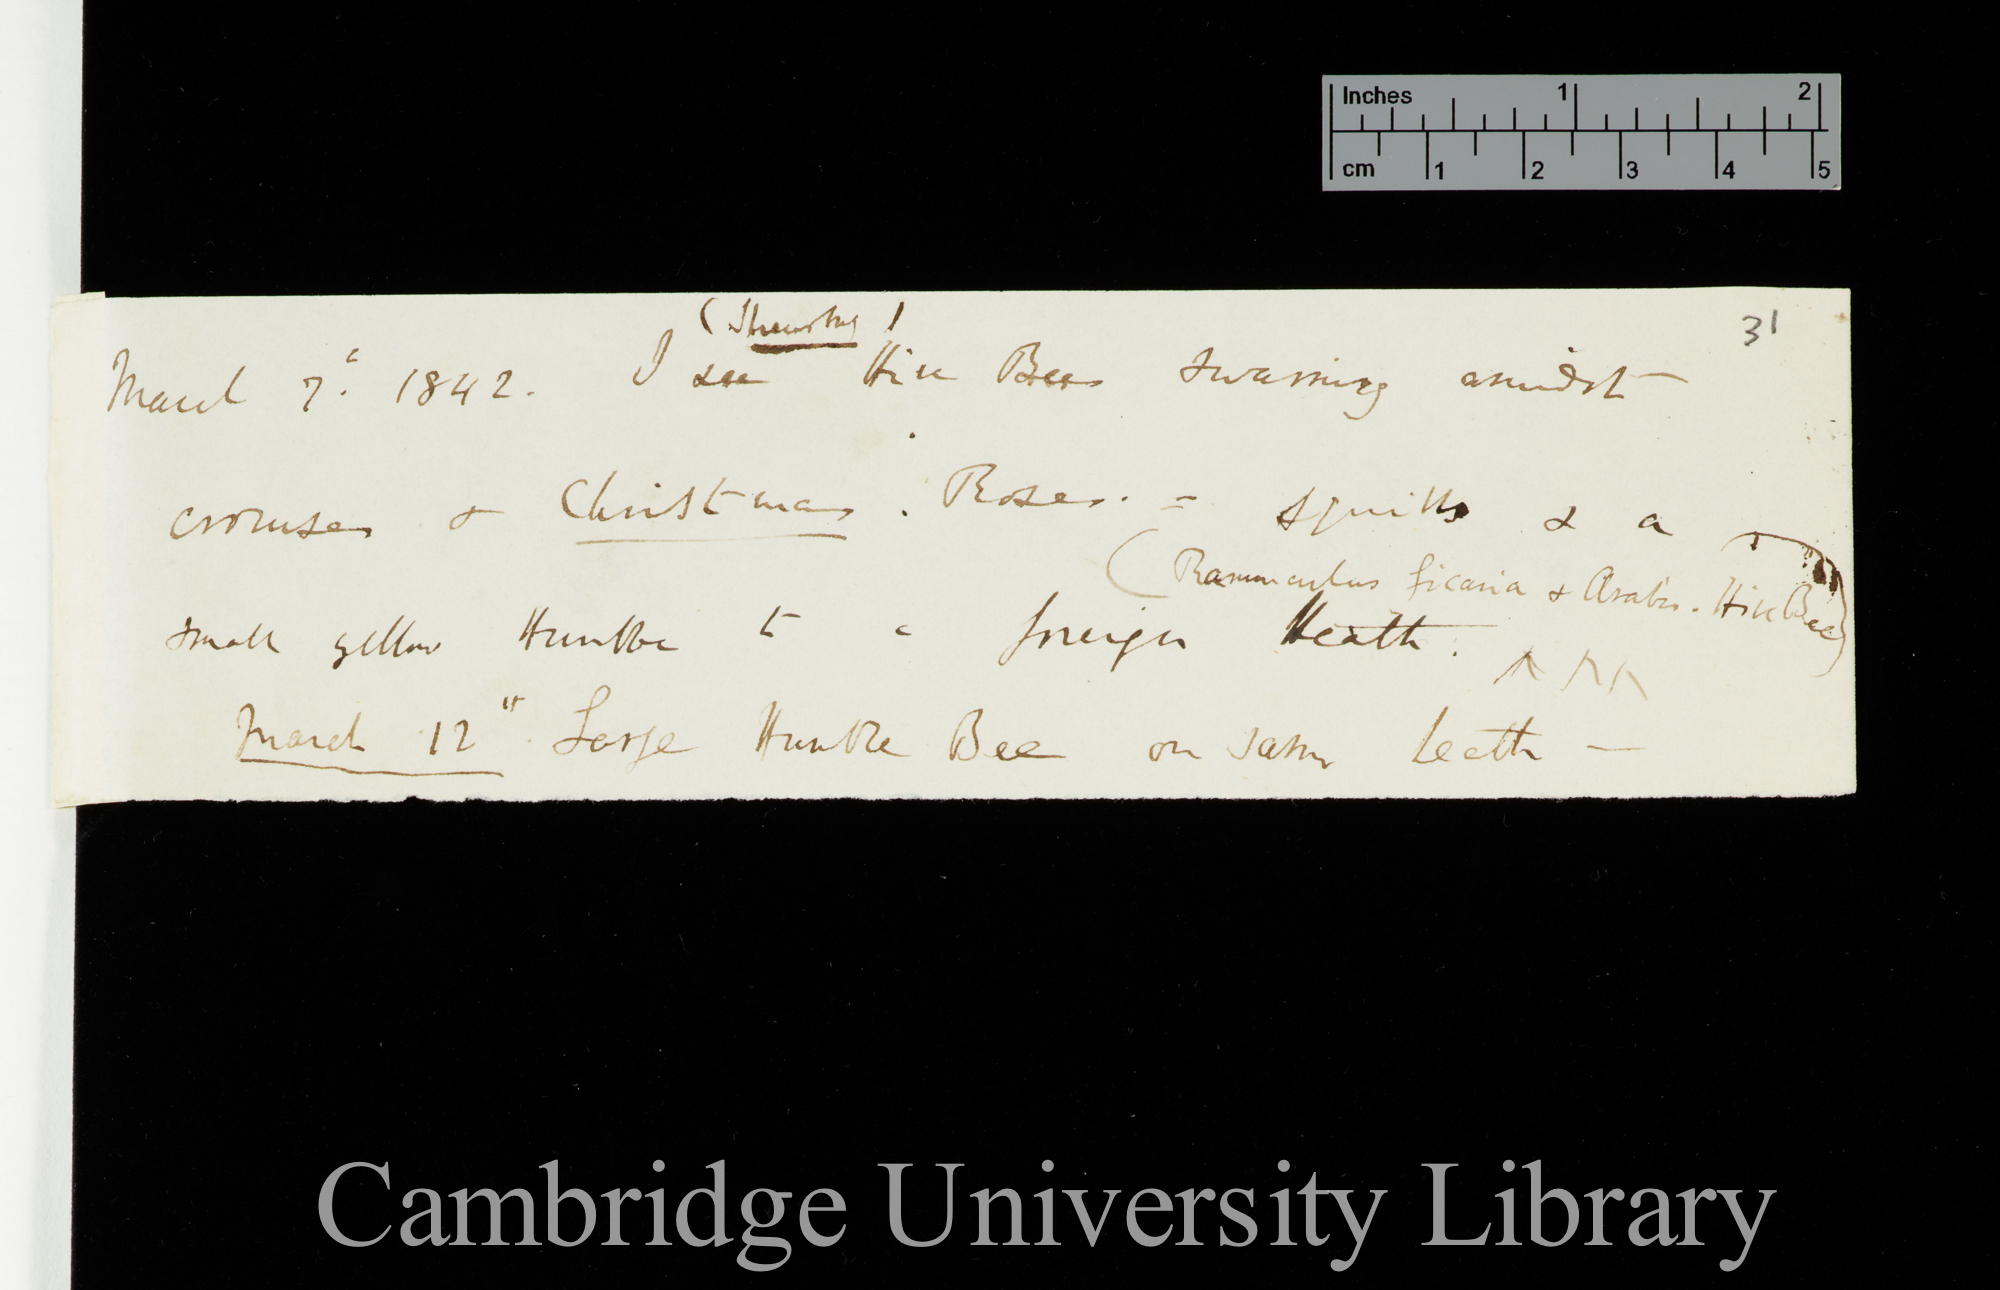 Inches 1 2
cm 1 2 3 4 5
31
(Shrewsbury)
March 7th. 1842. I see Hive Bees swarming amidst
crocuses & Christmas. Roses. = squills & a
(Ranunculus ficaria & Arabis. Hive Bees)
small yellow Humble to a foreign Heath.
March 12th Large Humble Bee on same heath —
Cambridge University Library